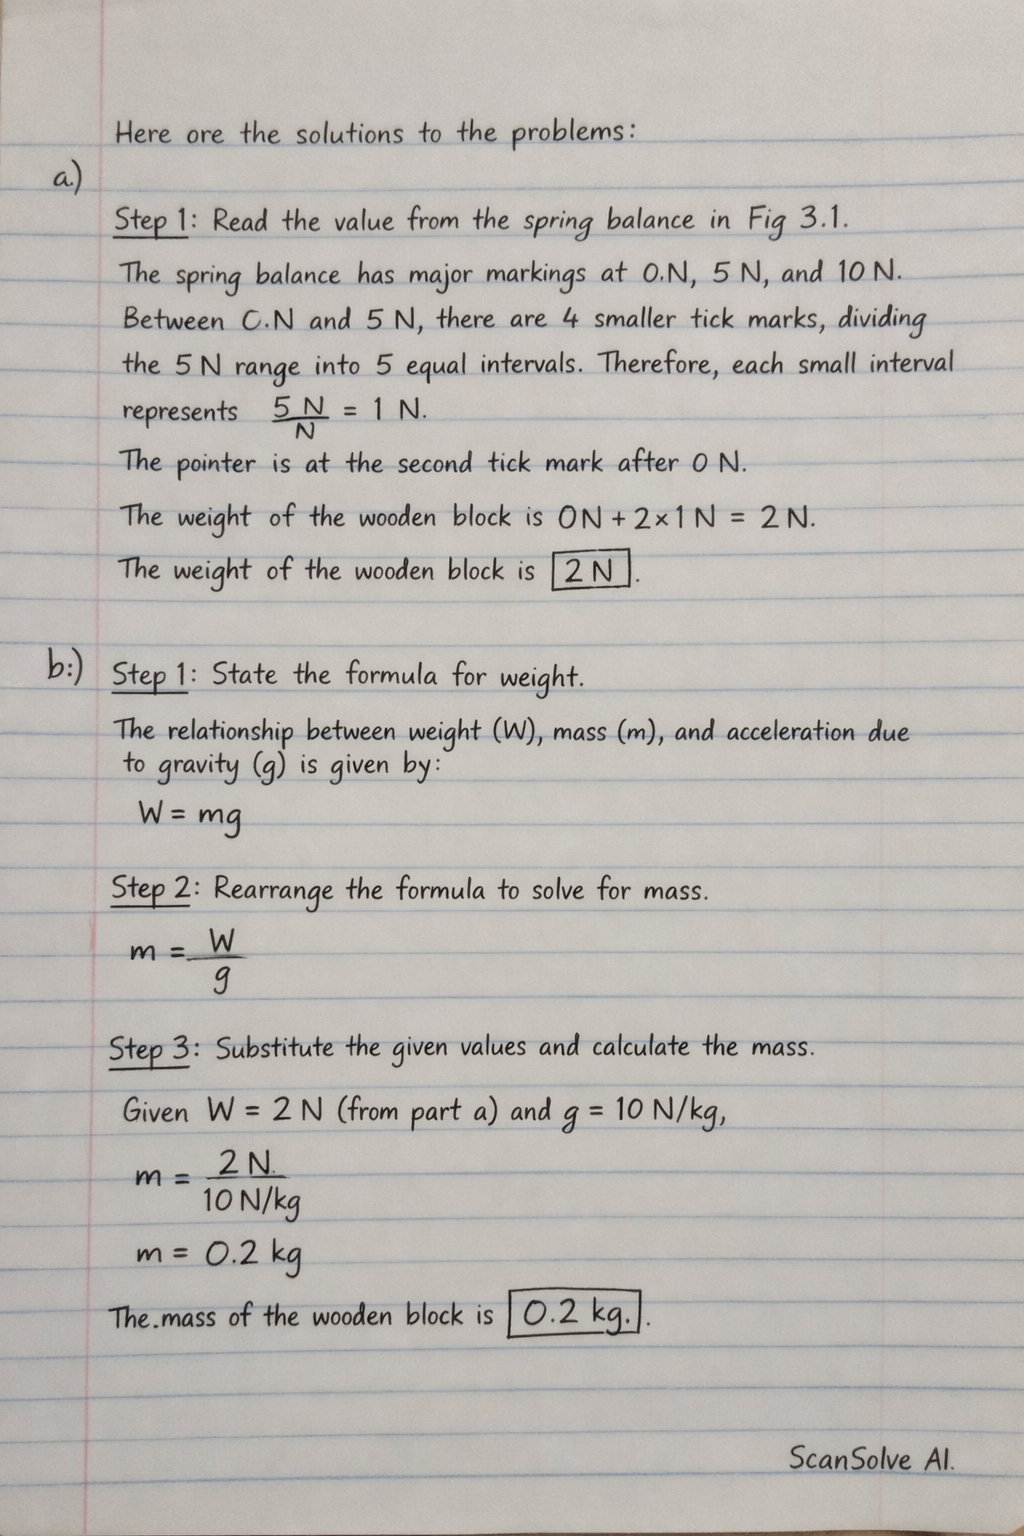 Here ore the solutions to the problems:
a.)
Step 1: Read the value from the spring balance in Fig 3.1.
The spring balance has major markings at 0.N, 5 N, and 10 N.
Between C.N and 5 N, there are 4 smaller tick marks, dividing
the 5 N range into 5 equal intervals. Therefore, each small interval
represents 5 N/N = 1 N.
The pointer is at the second tick mark after 0 N.
The weight of the wooden block is 0N + 2×1 N = 2 N.
The weight of the wooden block is 2 N.
b:) Step 1: State the formula for weight.
The relationship between weight (W), mass (m), and acceleration due
to gravity (g) is given by:
W = mg
Step 2: Rearrange the formula to solve for mass.
m = W/g
Step 3: Substitute the given values and calculate the mass.
Given W = 2 N (from part a) and g = 10 N/kg,
m = 2 N./10 N/kg
m = 0.2 kg
The.mass of the wooden block is 0.2 kg..
ScanSolve AI.